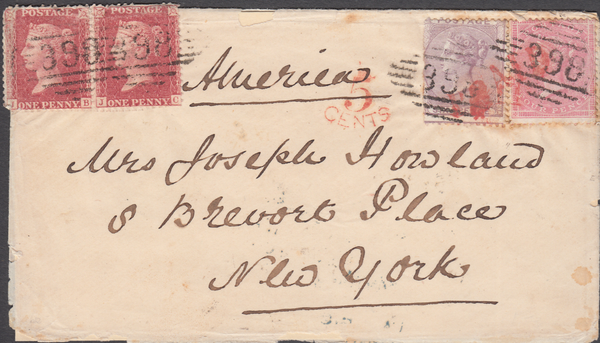 POSTAGE POSTAGE
398 398
J B J C
ONE PENNY ONE PENNY
America
5
CENTS
398 398
Mrs Joseph Howland
8 Brevort Place
New York